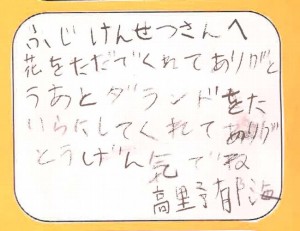 ふじけんせつさんへ
花をただでくれてありがと
うあとグランドをた
いらにしてくれてありが
とうげん気でね
高里予郁海